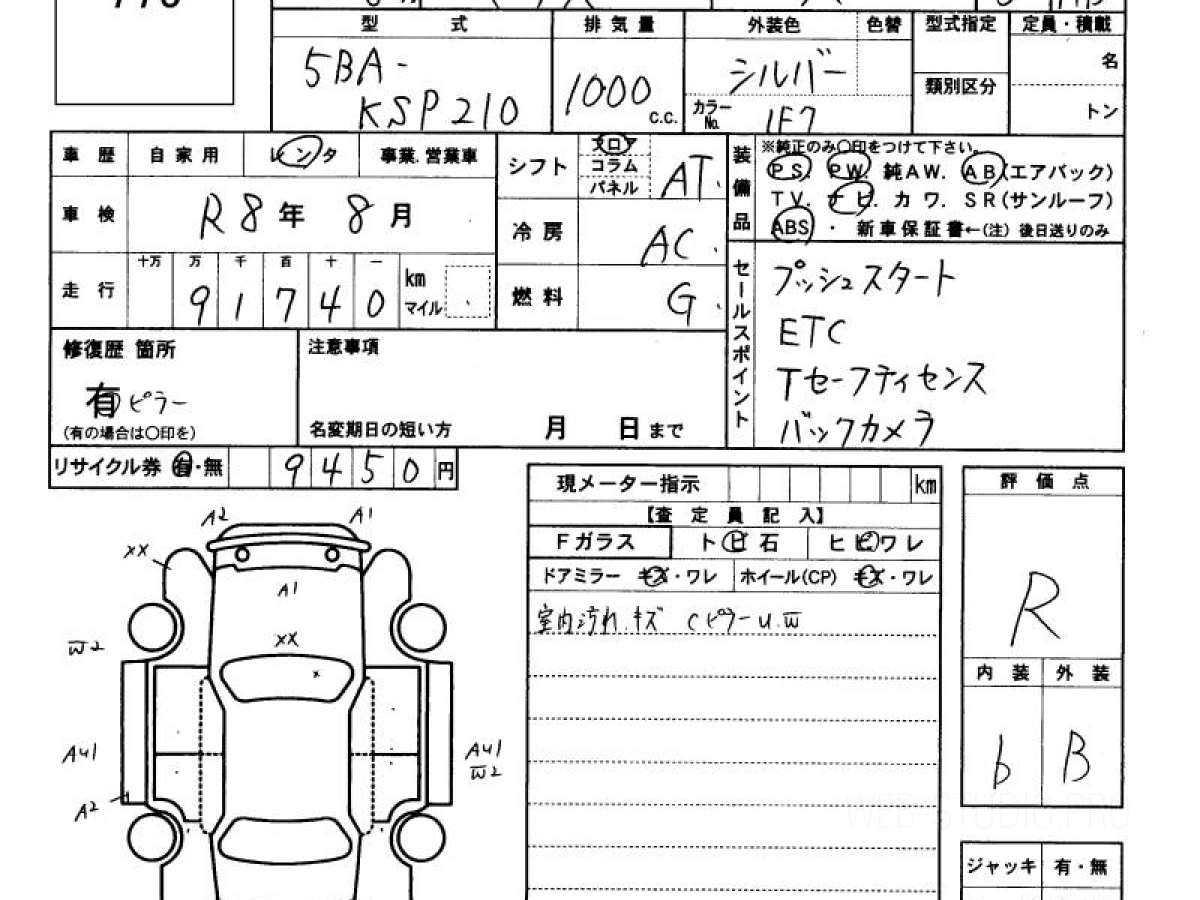 型 式 排気量 外装色 色替 型式指定 定員・積載
5BA-
KSP210
1000 c.c.
シルバー
カラーNo. 1F7
類別区分
名
トン
車歴 自家用 レンタ 事業.営業車
車検 R8年 8月
十万 万 千 百 十 一
走行 9 1 7 4 0 km
マイル
シフト フロア
コラム
パネル
AT
冷房 AC
燃料 G
装備品
※純正のみ○印をつけて下さい。
PS. PW. 純AW. AB(エアバック)
TV. ナビ. カワ. SR(サンルーフ)
ABS ・ 新車保証書←(注) 後日送りのみ
セールスポイント
プッシュスタート
ETC
Tセーフティセンス
バックカメラ
修復歴 箇所
有 ピラー
(有の場合は○印を)
注意事項
名変期日の短い方 月 日まで
リサイクル券 有・無 9 4 5 0 円
現メーター指示 km
【査定員記入】
Fガラス トビ石 ヒビワレ
ドアミラー キズ・ワレ ホイール(CP) キズ・ワレ
室内汚れ.キズ CピラーU.W
評価点
R
内装 外装
b B
ジャッキ 有・無
A2 A1
XX
A1
XX
W2
AU1
A2
AU1
W2
WEB-STUDIO.PRO